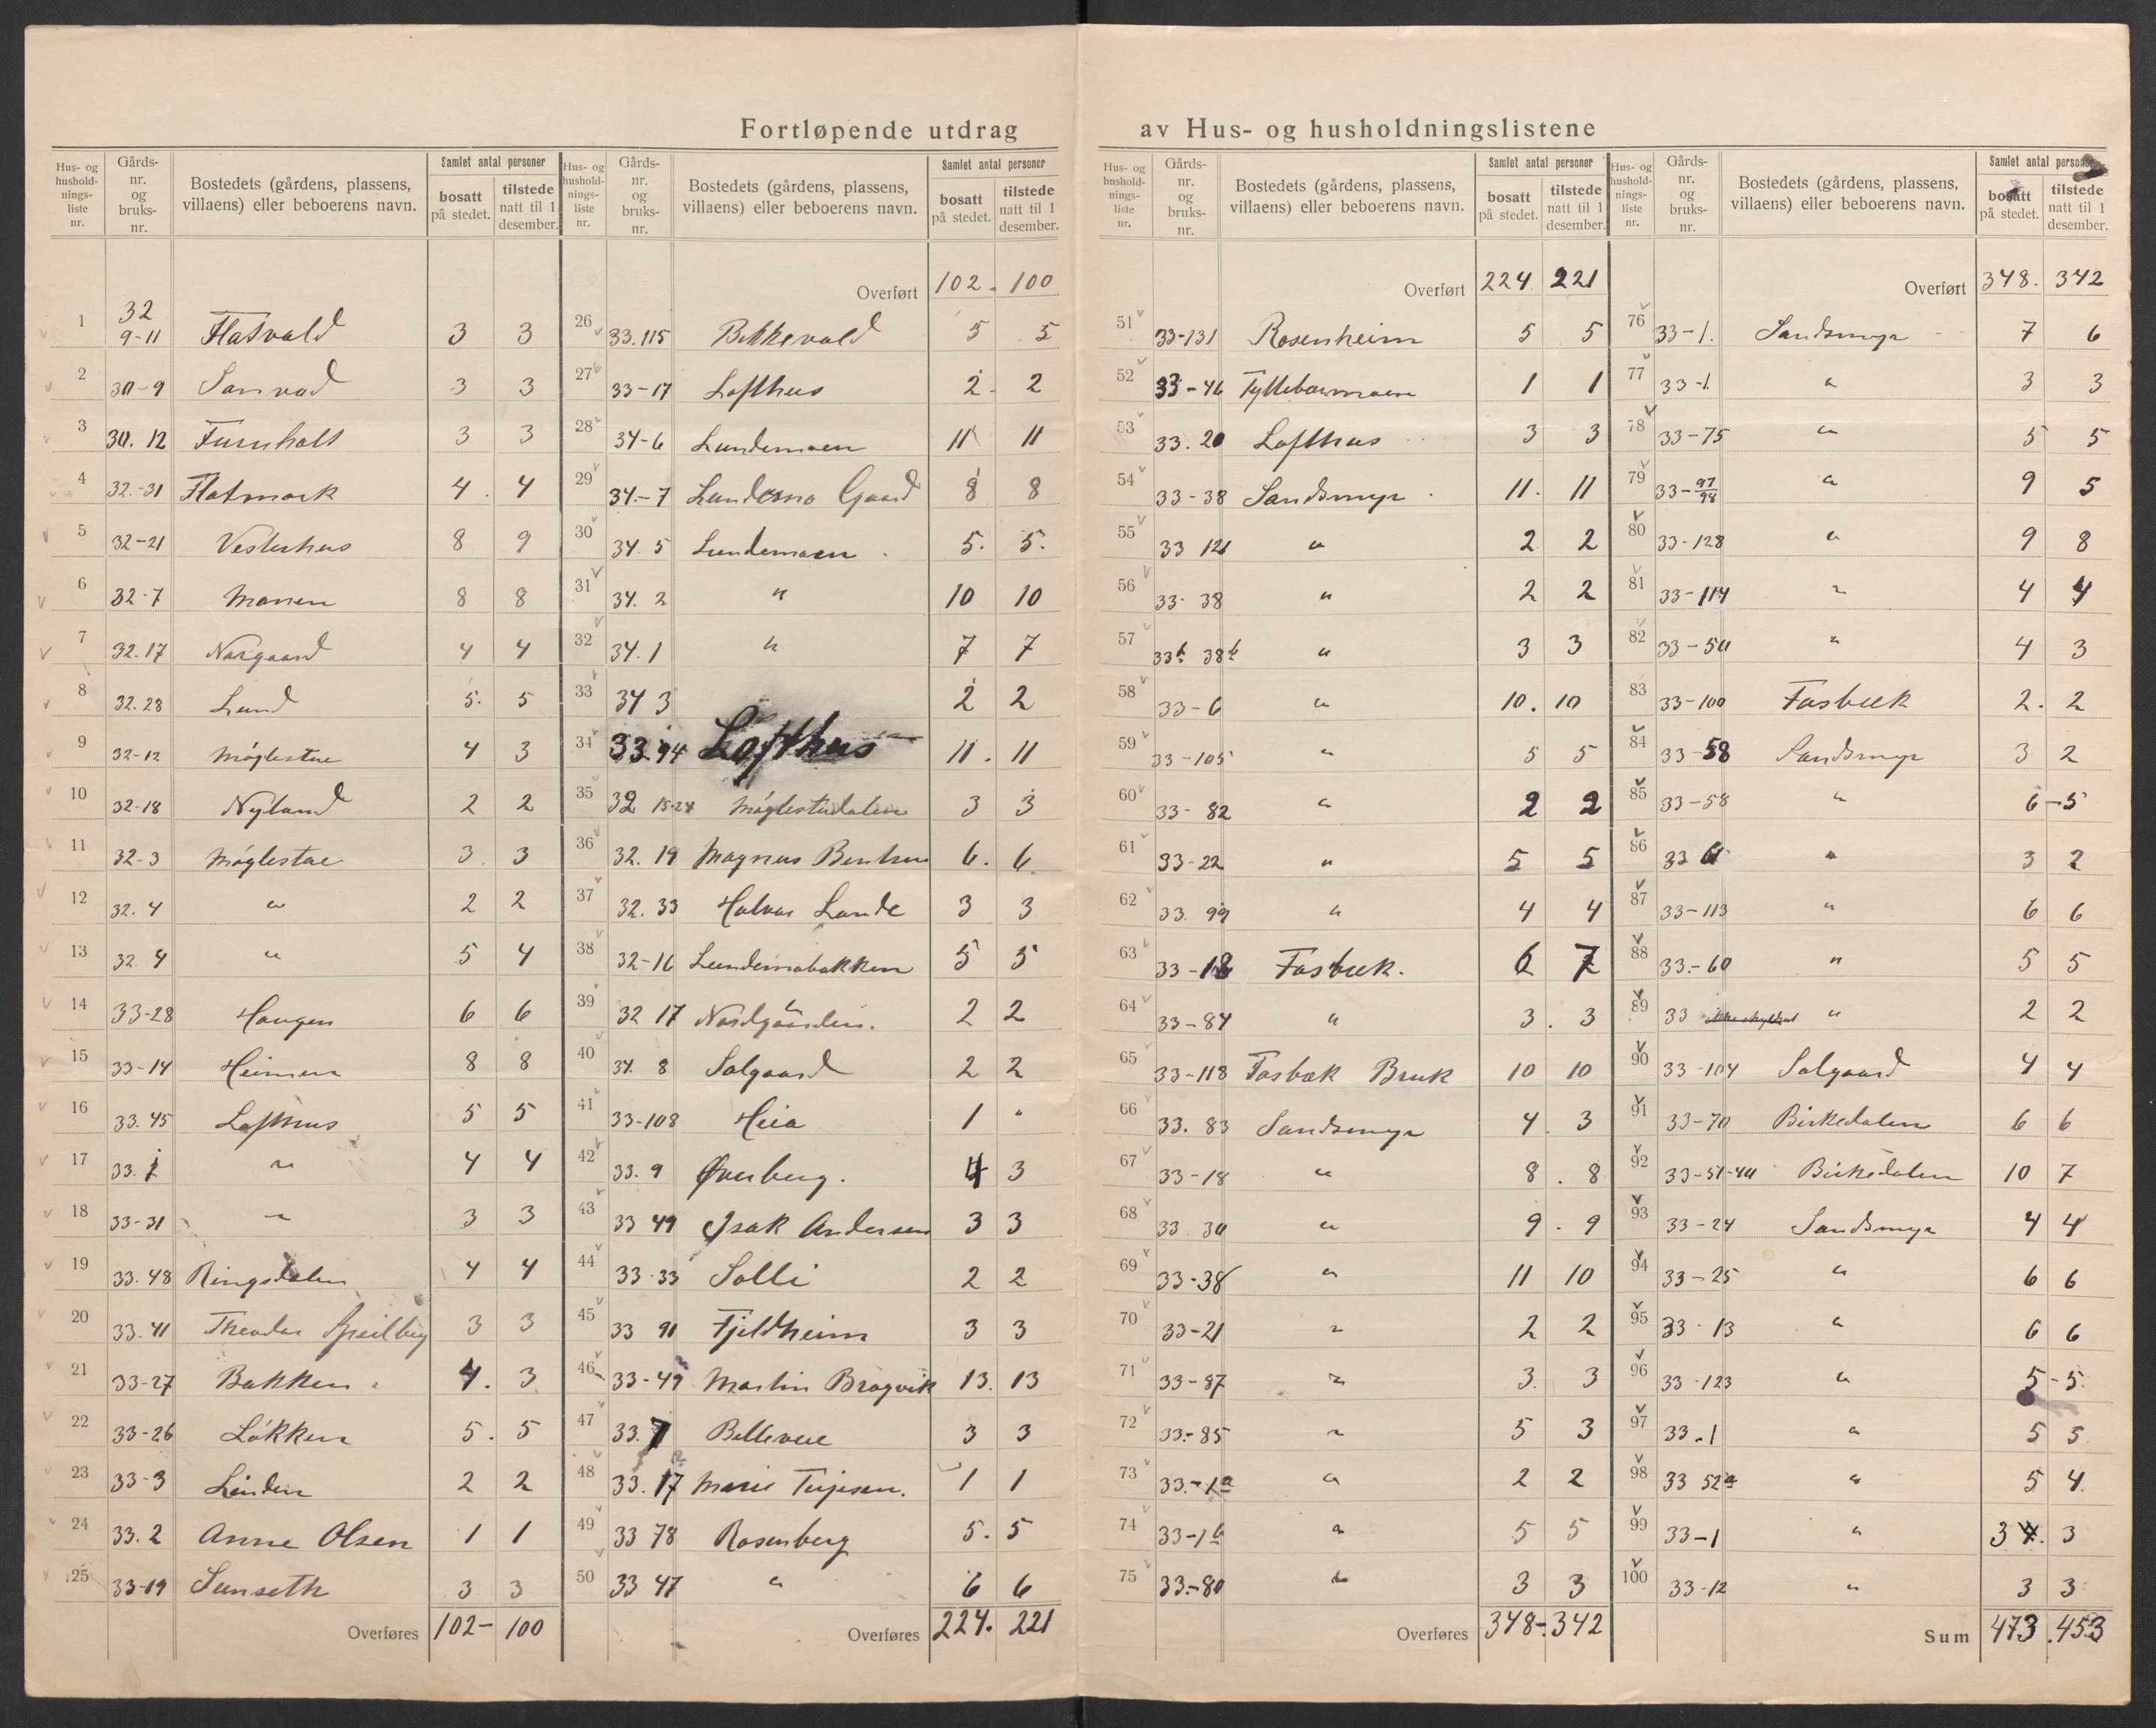 Fortløpende utdrag av Hus- og husholdningslistene
Hus- og husholdnings- liste nr. | Gårds- nr. og bruks- nr. | Bostedets (gårdens, plassens, villaens) eller beboerens navn. | Samlet antal personer bosatt på stedet. | tilstede natt til 1 desember.
1 32 9-11 Flatvald 3 3
2 30-9 Sanvad 3 3
3 30. 12 Furuholt 3 3
4 32.-31 Flatmark 4. 4
5 32-21 Vesterhus 8 9
6 32-7 Monen 8 8
7 32.17 Norgaard 4 4
8 32.28 Lund 5. 5
9 32-12 Møglestue 4 3
10 32-18 Nyland 2 2
11 32-3 Møglestue 3. 3
12 32.4 " 2 2
13 32.4 " 5 4
14 33-28 Haugen 6 6
15 33-14 Heimen 8 8
16 33.45 Lofthus 5 5
17 33. " 4 4
18 33-31 " 3 3
19 33.48 Ringsdalen 4 4
20 33.41 Theodor 3 3
21 33-27 Bakken 4. 3
22 33-26 Løkken 5. 5
23 33-3 Linden 2 2
24 33.2 Anne Olsen 1 1
25 33-19 Sunseth 3 3
Overføres 102- 100
Hus- og husholdnings- liste nr. | Gårds- nr. og bruks- nr. | Bostedets (gårdens, plassens, villaens) eller beboerens navn. | Samlet antal personer bosatt på stedet. | tilstede natt til 1 desember.
Overført 102. 100
26 33.115 Birkevold 5 5
27 33-17 Lofthus 2. 2
28 34-6 Lundemoen 11 11
29 34.-7 Lundemo Gaard 8 8
30 34.5 Lundemoen 5. 5.
31 34. 2 " 10 10
32 34.1 " 7 7
33 34 3 2 2
34 33.94 Lofthus 11. 11
35 32 15-24 Møglestudalen 3 3
36 32. 19 Magnus 6. 6
37 32. 33 Halvor Lunde 3 3
38 32-16 Lundemobakken 5 5
39 32 17 Nordgården. 2 2
40 34. 8 Solgaard 2 2
41 33-108 Heia 1 "
42 33. 9 Øverberg. 4 3
43 33 49 Isak Andersen 3 3
44 33.33 Solli 2 2
45 33 91 Fjeldheim 3 3
46 33-49 Martin Bragvik 13. 13
47 33.7 Bellevue 3 3
48 33.17 Marie Terjesen. 1 1
49 33 78 Rosenberg 5. 5
50 33 47 " 6 6
Overføres 224. 221
Hus- og husholdnings- liste nr. | Gårds- nr. og bruks- nr. | Bostedets (gårdens, plassens, villaens) eller beboerens navn. | Samlet antal personer bosatt på stedet. | tilstede natt til 1 desember.
Overført 224 221
51 33-131 Rosenheim 5 5
52 33-46 Tyttebærmoen 1 1
53 33.20 Lofthus 3 3
54 33-38 Sandsmyr. 11. 11
55 33 121 " 2 2
56 33. 38 " 2 2
57 33b 38b " 3 3
58 33-6 " 10. 10
59 33-105 " 5 5
60 33-82 " 2 2
61 33-22 " 5 5
62 33. 99 " 4 4
63 33-18 Fosbæk. 6 7
64 33-84 " 3. 3
65 33-118 Fosbæk Bruk 10 10
66 33. 83 Sandsmyr 4. 3
67 33-18 " 8. 8
68 33. 30 " 9. 9
69 33-38 " 11 10
70 33-21 " 2 2
71 33-87 " 3. 3
72 33.-85 " 5 3
73 33.-1a " 2 2
74 33-1b " 5 5
75 33.-80 " 3 3
Overføres 348-.342
Hus- og husholdnings- liste nr. | Gårds- nr. og bruks- nr. | Bostedets (gårdens, plassens, villaens) eller beboerens navn. | Samlet antal personer bosatt på stedet. | tilstede natt til 1 desember.
Overført 348. 342
76 33-1. Sandsmyr 7 6
77 33-1 " 3 3
78 33-75 " 5 5
79 33-97/98 " 9 5
80 33-128 " 9 8
81 33-114 " 4 4
82 33-50 " 4 3
83 33-100 Fosbæk 2. 2
84 33-58 Sandsmyr 3 2
85 33-58 " 6-5
86 33 61 " 3 2
87 33-113 " 6 6
88 33.-60 " 5 5
89 33 " 2 2
90 33-104 Solgaard 4 4
91 33-70 Birkedalen 6 6
92 33-51-40 Birkedalen 10 7
93 33-24 Sandsmyr 4 4
94 33-25 " 6 6
95 33. 13 " 6 6
96 33-123 " 5-5
97 33.1 " 5 5
98 33 52a " 5 4.
99 33-1 " 3 4. 3
100 33-12 " 3 3
Sum 473.453